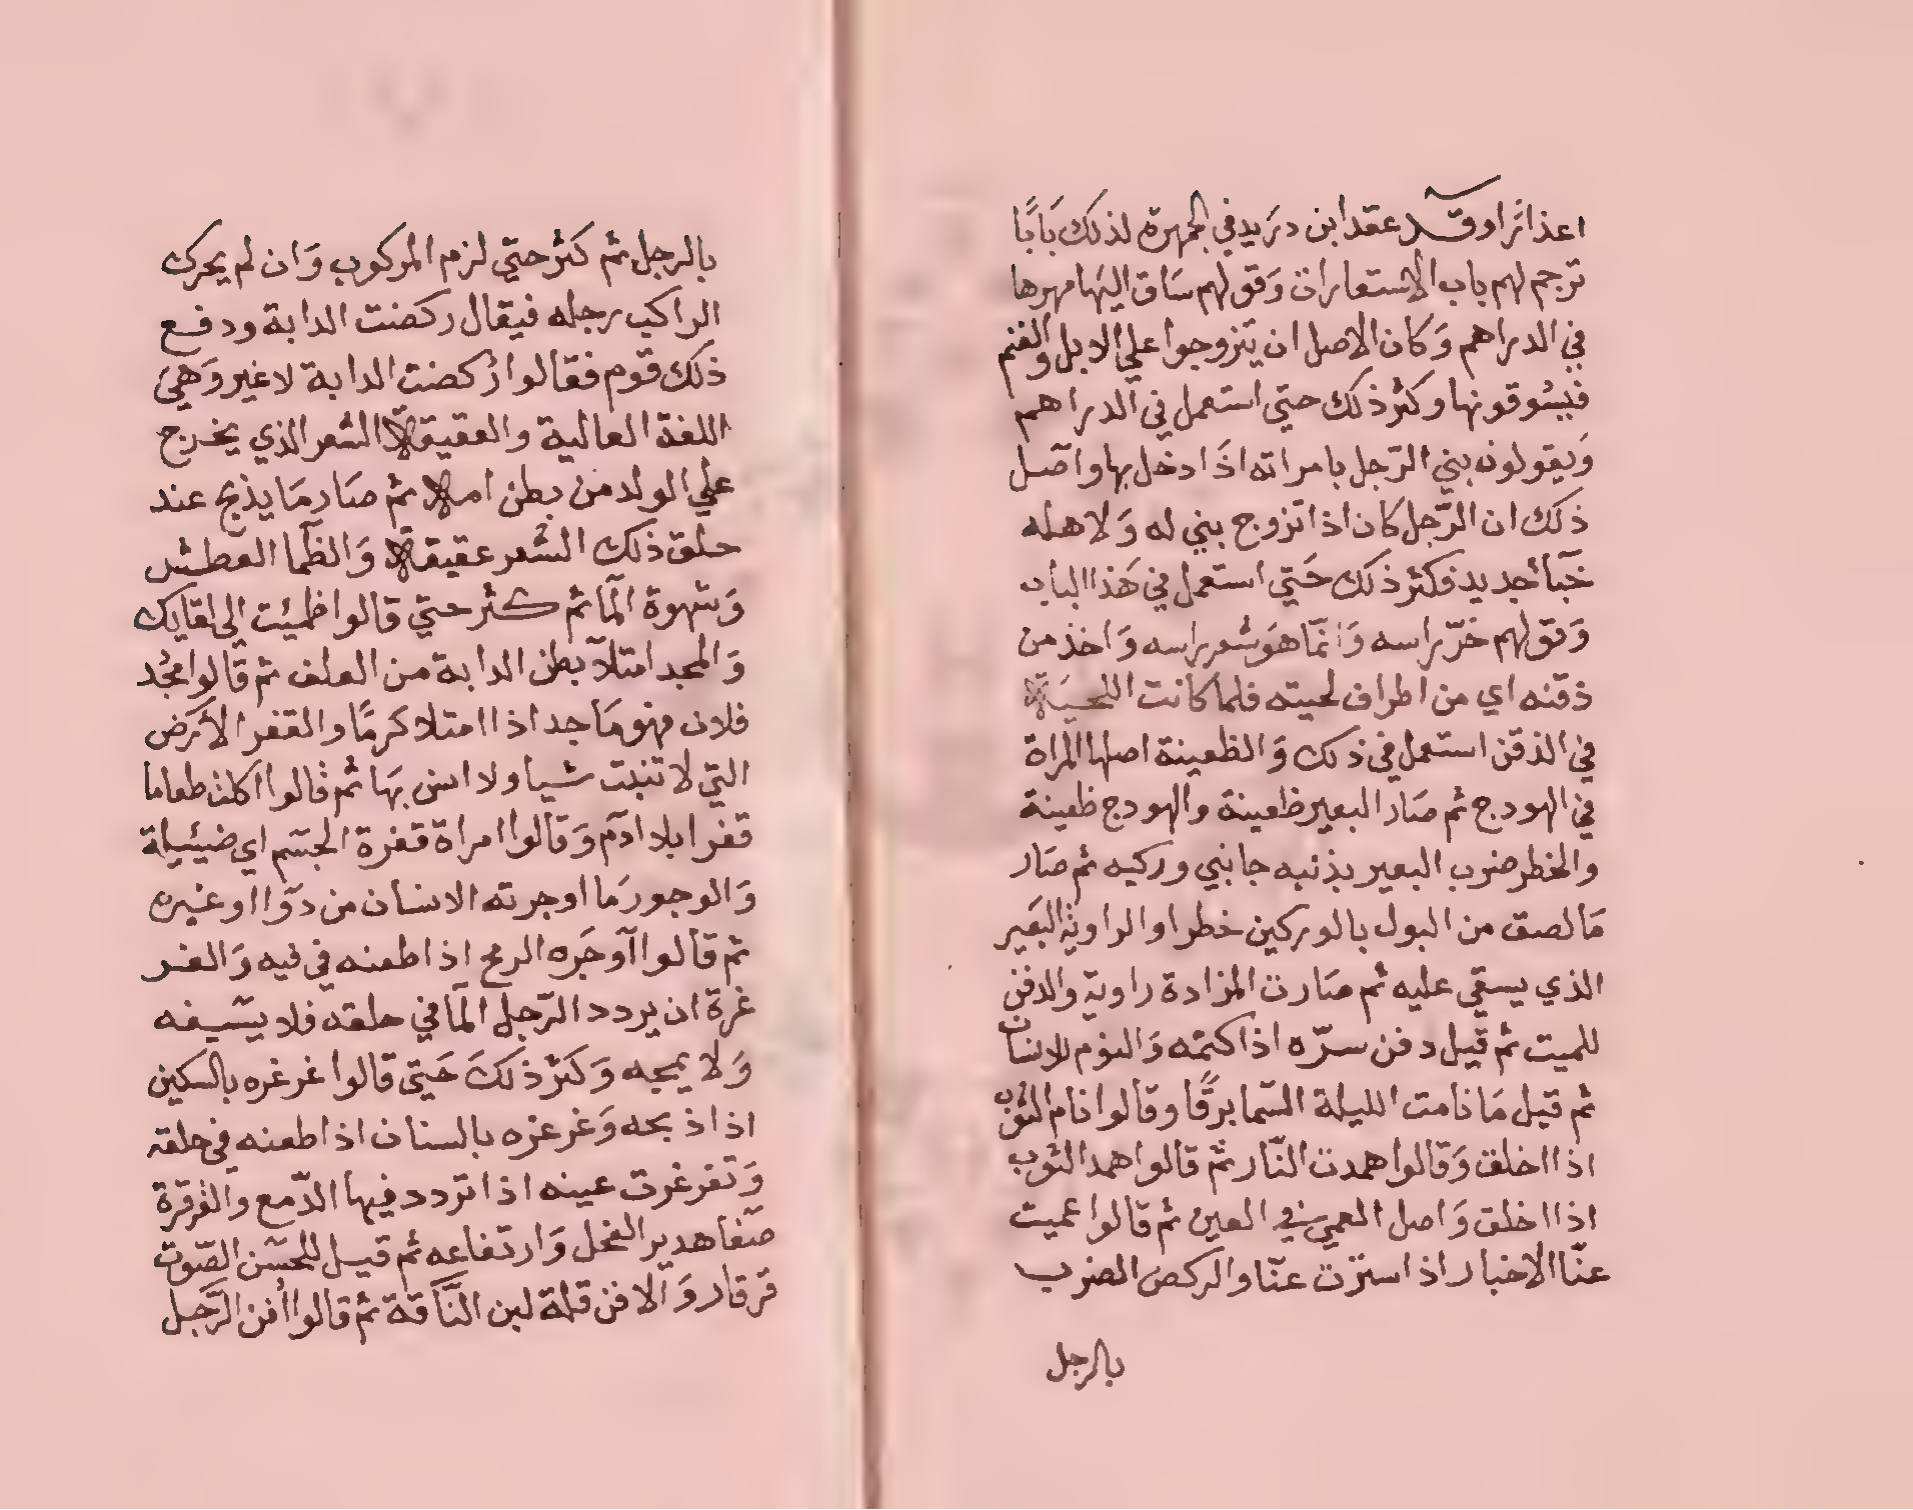 اعذارًا وقد عقد ابن دريد في الجمهرة لذلك بَابًا
ترجم لهم باب الاستعارات وَقولهم سَاق اليهَا مهرها
في الدراهم وَكان الاصل ان يتزوجوا علي الابل والغنم
فيسُوقونها وكثر ذلك حتي استعمل في الدراهم
وَيقولون بني الرّجل بامراته اذَا دخل بها واصل
ذلك ان الرّجل كان اذا تزوج بني له وَلاهله
خبآ جديد فكثر ذلك حَتي استعمل في هَذا الباب
وَقولهم خرّ براسه وَانمّا هوَ شعر براسه وَاخذ من
ذقنه اي من اطراف لحيته فلما كانت اللحيَة
في الذقن استعمل في ذلك وَالظعينة اصلها المراة
في الهودج ثم صَار البعير ظعينة والهودج ظعينة
والخطر ضرب البعير بذنبه جانبي وركيه ثم صَار
مَا لصق من البول بالوركين خطرا والراوية البعَير
الذي يسقي عليه ثم صَارت المزادة راوية والدفن
للميت ثم قيل دفن سرّه اذا كتمه وَالنوم للانسان
ثم قيل مَا نامت الليلة السّما برقًا وقالوا نام الثوب
اذا اخلق وَقالوا همدت النّار ثم قالوا همد الثوب
اذا اخلق وَاصل العمي في العين ثم قالوا عميت
عنّا الاخبار اذا استرت عنّا والركض الضرب
بالرجل
بالرجل ثم كثر حتيّ لزم المركوب وَان لم يحرك
الراكب رجله فيقال ركضت الدابة ودفع
ذلك قوم فقالوا رُكضت الدابة لا غير وَهيَ
اللغة العالية والعقيقة الشعر الذي يخرج
علي الولد من بطن امه ثم صَار مَا يذبح عند
حلق ذلك الشعر عقيقة وَالظما العَطش
وَشهوة المآ ثم كثر حتيّ قالوا ظمِئت الي لقايك
وَالمجد امتلآ بطن الدابة من العلف ثم قالوا مجُد
فلان فهو مَاجد اذا امتلا كرمًا والقفر الأَرض
التي لا تنبت شيا ولا انس بهَا ثم قالوا اكلت طعاما
قفرا بلا ادم وَقالوا امراة قفرة الجسم اي ضئيلة
وَالوجور مَا اوجرته الانسان من دوَا او غيره
ثم قالوا اوجَره الرمح اذا طعنه في فيه وَالغر
غرة ان يردد الرّجل المآ في حلقه فلا يسيغه
وَلا يمجه وَكثر ذلكَ حَتي قالوا غرغره بالسكين
اذا ذبحه وَغرغره بالسنان اذا طعنه في حلقه
وَتغرغرت عينه اذا تردد فيها الدّمع والقرقرة
صَفا هدير الفحل وَارتفاعه ثم قيل للحسَن الصّوت
قرقار وَالافن قلة لبن النّاقة ثم قالوا أفن الرّجل